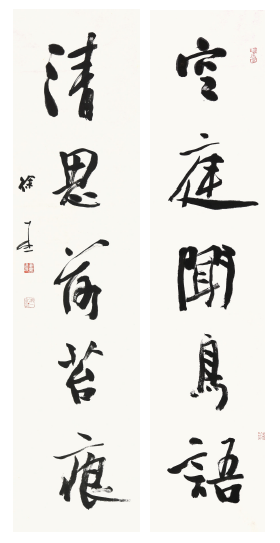 空庭聞鳥語
清思苔痕
徐